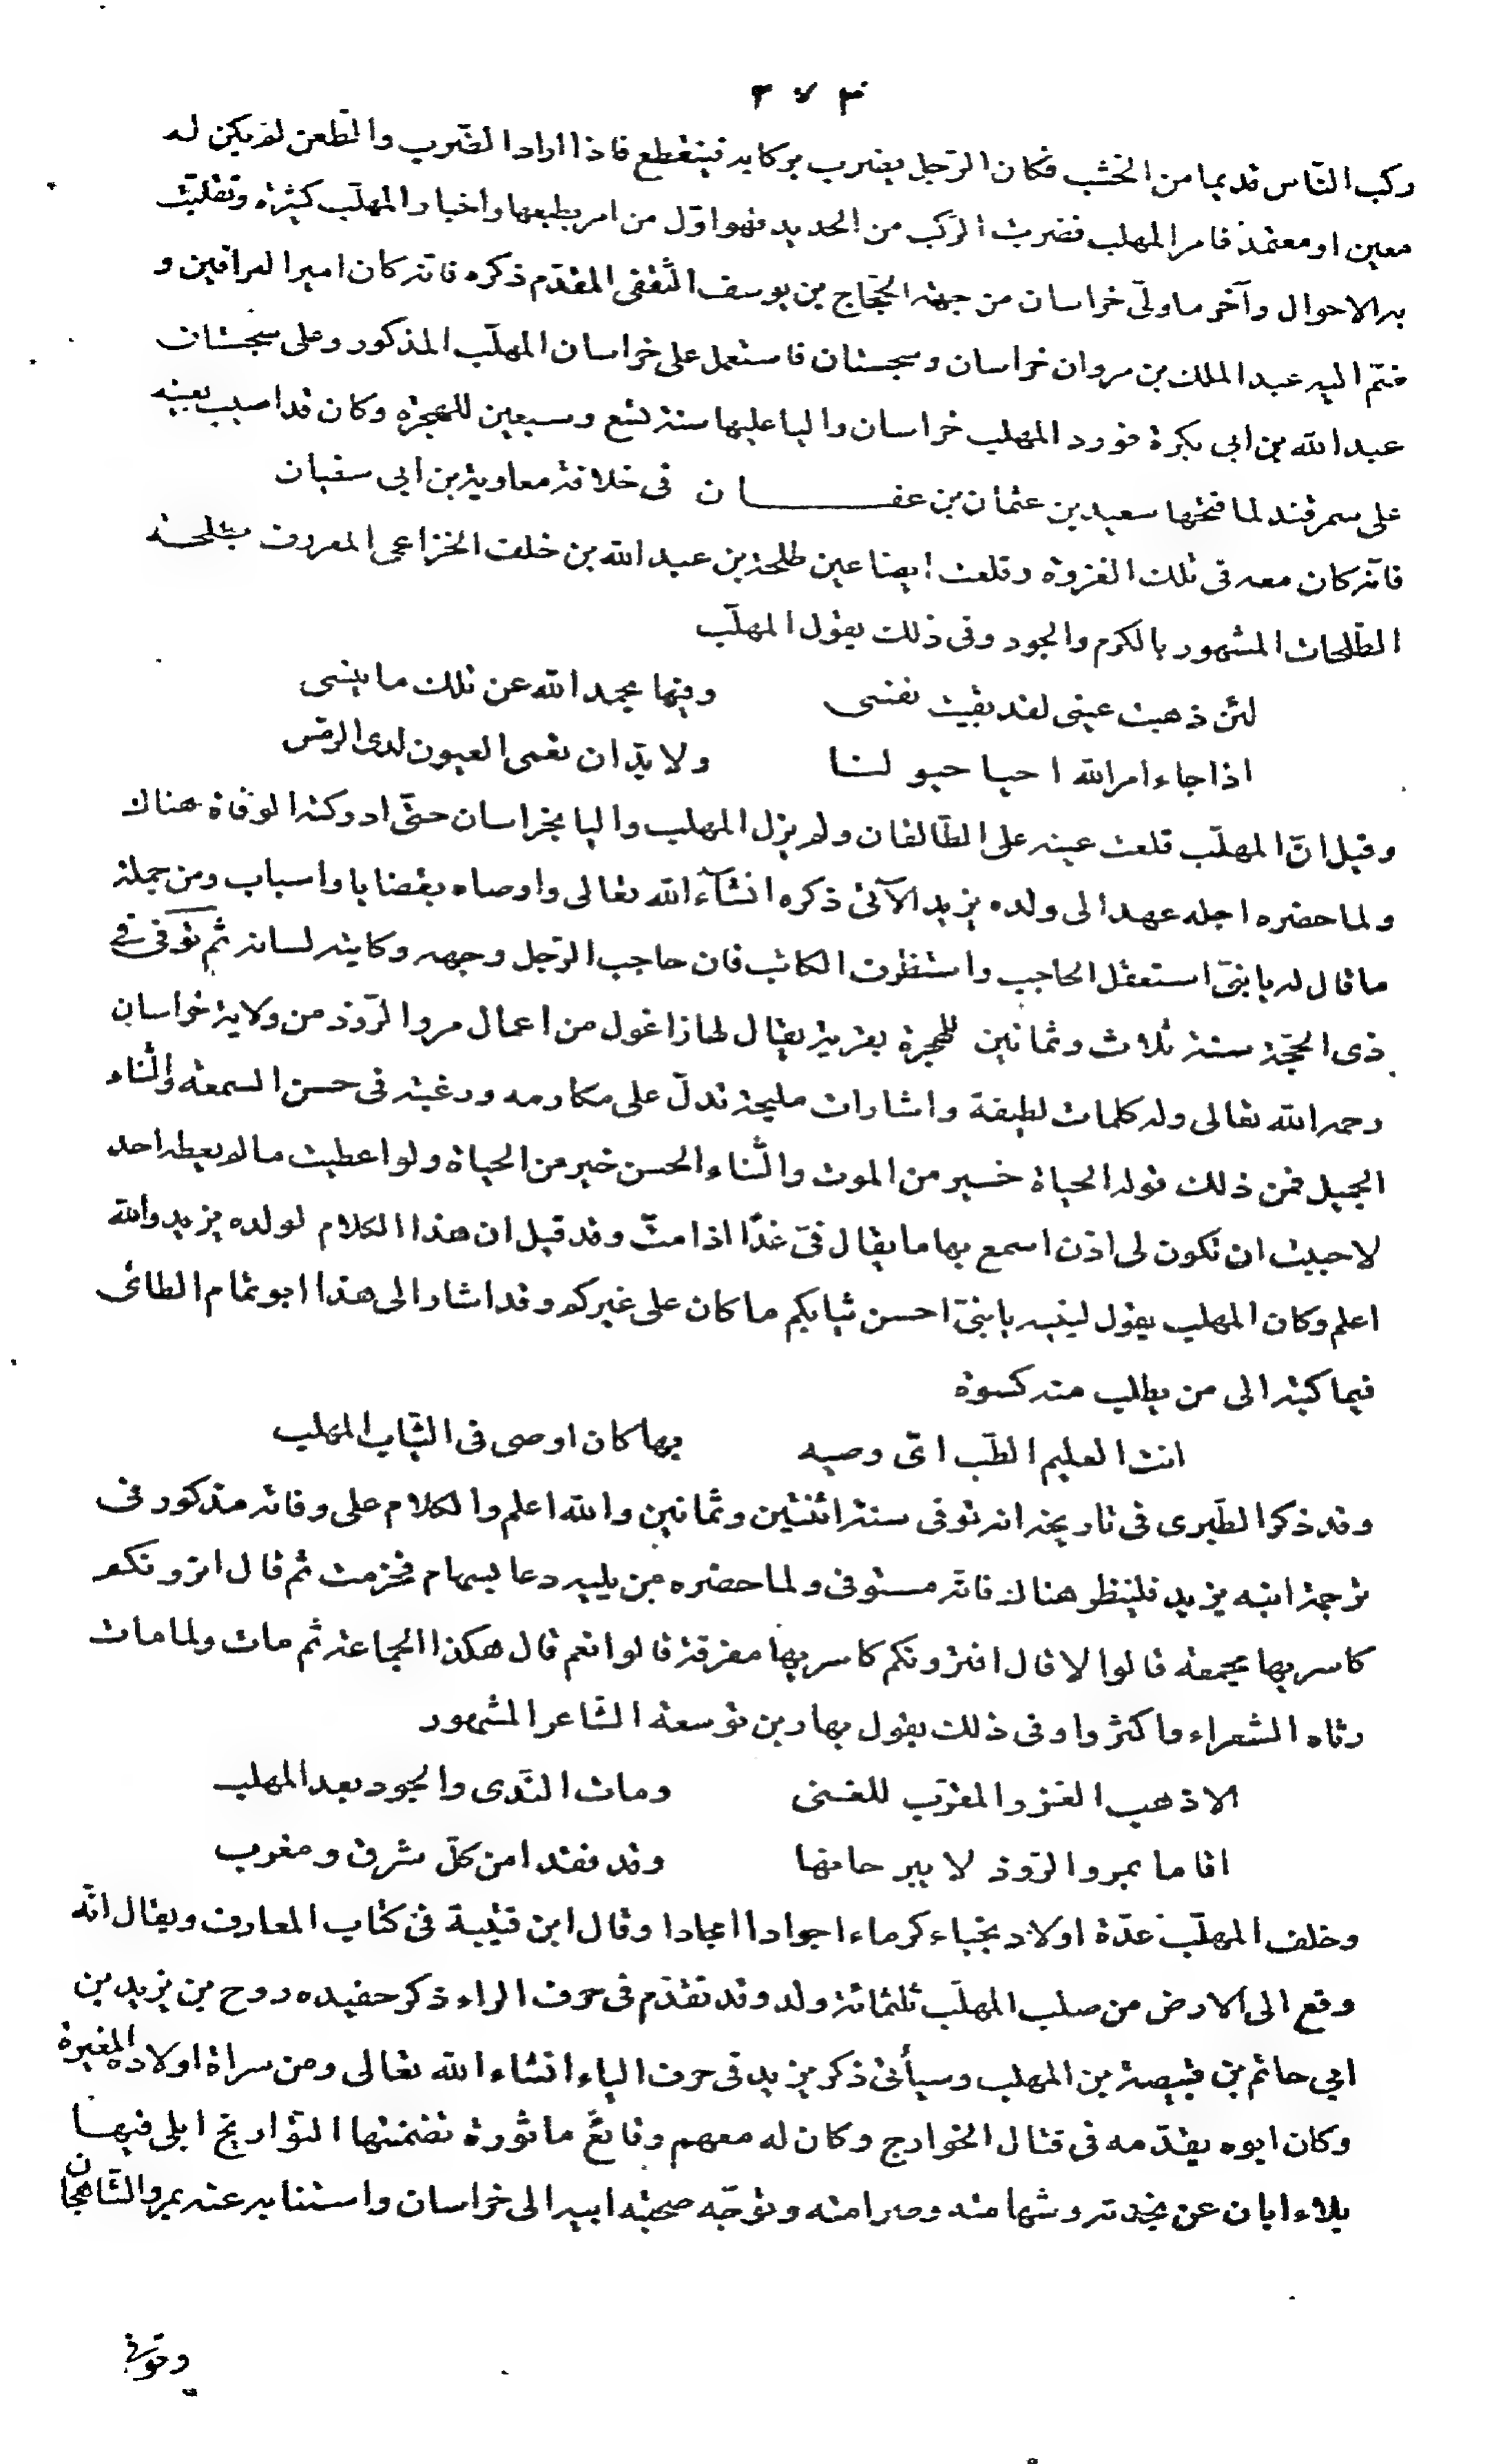 ركب الناس قديما من الخشب فكان الرّجل يضرب بركابه فينقطع فاذا اراد الضّرب والطّعن لم يكن له
معين او معتمد فامر المهلب فضربت الرّكب من الحديد فهو اوّل من امر بطبعها واخبار المهلّب كثيرة وتقلّبت
به الاحوال وآخر ما ولّى خراسان من جهة الحجّاج بن يوسف الثّقفى المقدّم ذكره فانّه كان امير العراقين و
ضمّ اليه عبد الملك بن مروان خراسان وسجستان فاستعمل على خراسان المهلّب المذكور وعلى سجستان
عبد الله بن ابى بكرة فورد المهلب خراسان واليا عليها سنة تسع وسبعين للهجرة وكان قد اصيب بعينه
على سمرقند لما فتحها سعيد بن عثمان بن عفان فى خلافة معاوية بن ابى سفيان
فانّه كان معه فى تلك الغزوة وقلعت ايضا عين طلحة بن عبد الله بن خلف الخزاعى المعروف بطلحة
الطّلحات المشهور بالكرم والجود وفى ذلك يقول المهلّب
لئن ذهبت عينى لقد بقيت نفسى وفيها بحمد الله عن تلك ما ينسى
اذا جاء امر الله احيا حيو لنا ولا بدّ ان تعمى العيون لدى الرمس
وقيل انّ المهلّب قلعت عينه على الطّالقان ولم يزل المهلب واليا بخراسان حتّى ادركته الوفاة هناك
ولما حضره اجله عهد الى ولده يزيد الآتى ذكره انشآء الله تعالى واوصاه بقضايا واسباب ومن جملة
ما قال له يا بنىّ استعقل الحاجب واستظرف الكاتب فان حاجب الرّجل وجهه وكاتبه لسانه ثم توفى فى
ذى الحجّة سنة ثلاث وثمانين للهجرة بقرية يقال لها زاغول من اعمال مرو الرّوذ من ولاية خراسان
رحمه الله تعالى وله كلمات لطيفة واشارات مليحة تدلّ على مكارمه ورغبته فى حسن السمعة والثّناء
الجميل فمن ذلك قوله الحياة خير من الموت والثّناء الحسن خير من الحياة ولو اعطيت ما لم يعطه احد
لاحببت ان تكون لى اذن اسمع بها ما يقال فىّ غدًا اذا متّ وقد قيل ان هذا الكلام لولده يزيد والله
اعلم وكان المهلب يقول لبنيه يا بنىّ احسن ثيابكم ما كان على غيركم وقد اشار الى هذا ابو تمام الطائى
فيما كتبه الى من يطلب منه كسوة
انت العليم الطّب اىّ وصيه بها كان اوصى فى الثّياب المهلب
وقد ذكر الطّبرى فى تاريخه انه توفى سنة اثنتين وثمانين والله اعلم والكلام على وفاته مذكور فى
ترجمة ابنه يزيد فلينظر هناك فانّه مستوفى ولما حضره من يليه دعا بسهام فحزمت ثم قال اترونكم
كاسريها مجتمعة قالوا لا قال افترونكم كاسريها مفرقة قالوا نعم قال هكذا الجماعة ثم مات ولما مات
رثاه الشعراء فاكثروا وفى ذلك يقول بهار بن توسعة الشّاعر المشهور
الا ذهب الغزو المقرّب للغنى ومات النّدى والجود بعد المهلب
اقاما بمرو الرّوذ لا يبرحانها وقد فقدا من كلّ شرق ومغرب
وخلف المهلّب عدّة اولاد نجباء كرماء اجوادا امجادا وقال ابن قتيبة فى كتاب المعارف ويقال انّه
وقع الى الارض من صلب المهلّب ثلثمائة ولد وقد تقدّم فى حرف الراء ذكر حفيده روح بن يزيد بن
ابى حاتم بن قبيصة بن المهلب وسيأتى ذكر يزيد فى حرف الياء انشاء الله تعالى ومن سراة اولاده المغيرة
وكان ابوه يقدّمه فى قتال الخوارج وكان له معهم وقائع ماثورة تضمنتها التّواريخ ابلى فيها
بلاء ابان عن نجدته وشهامته وصرامته وتوجّه صحبة ابيه الى خراسان واستنابه عنه بمرو الشّاهجان
وتوفى